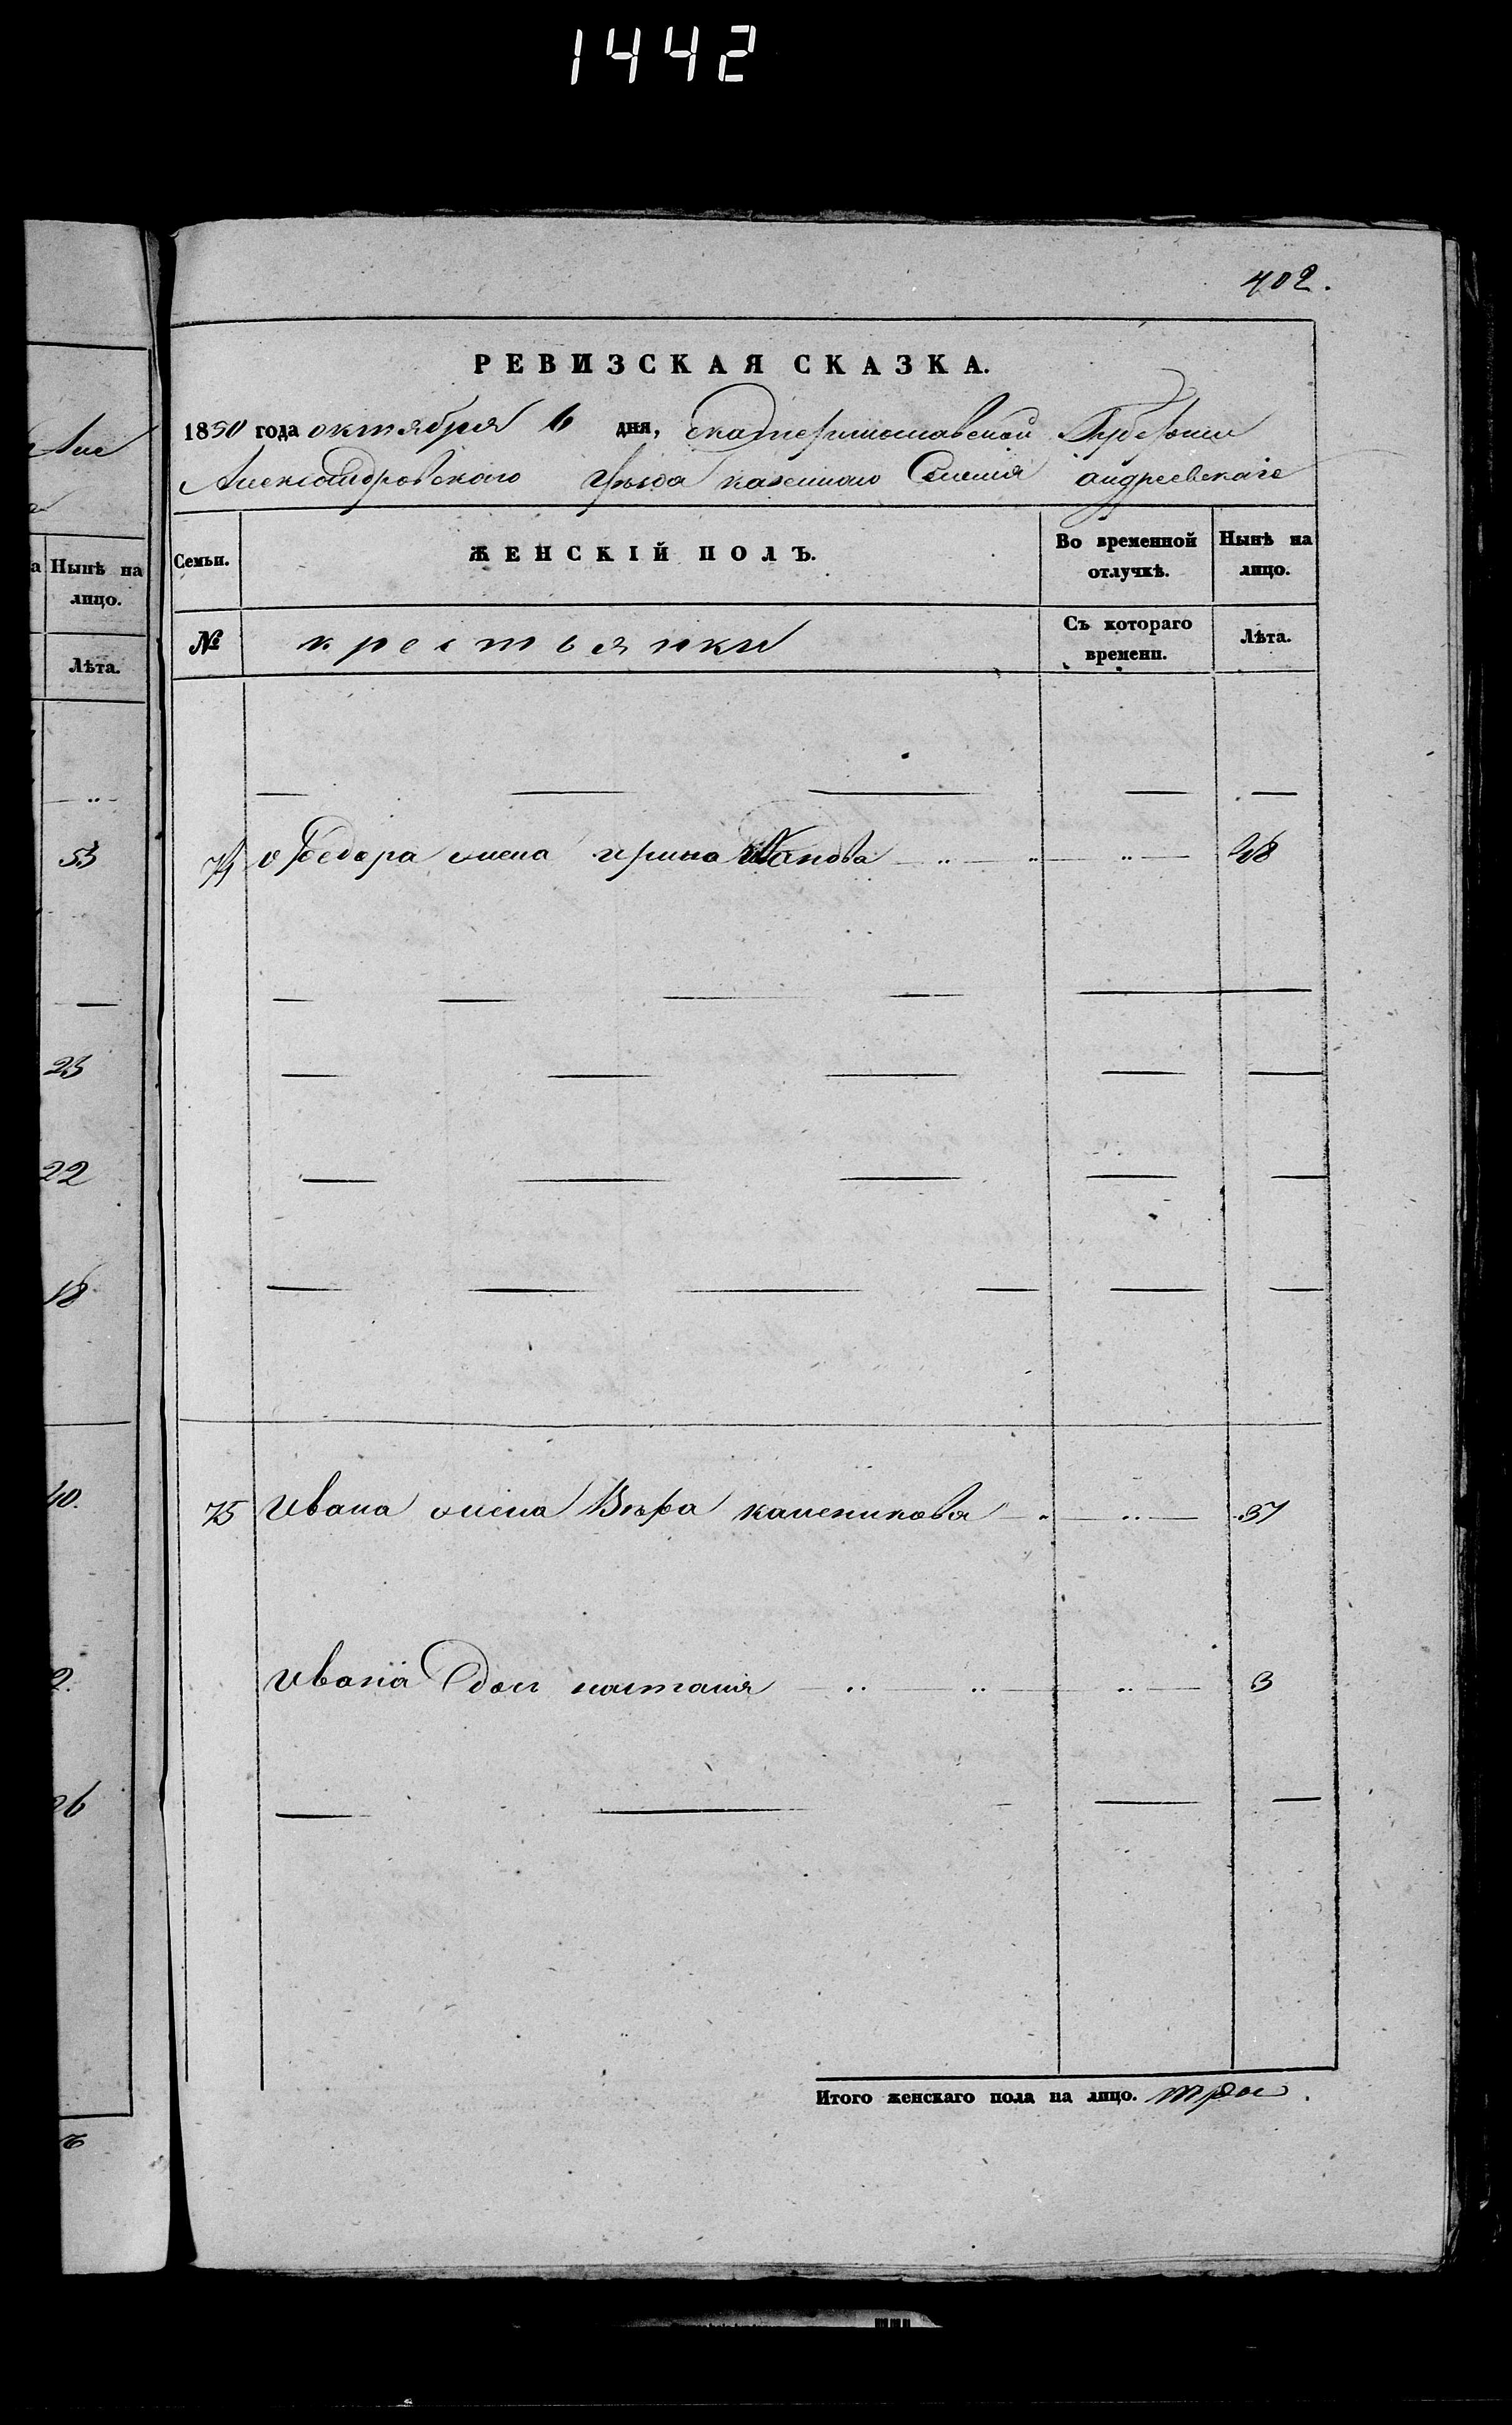 1442
402.
Але
а Нынѣ на
лицо.
Лѣта.
53
23
22
18
40.
2.
26
РЕВИЗСКАЯ СКАЗКА.
1850 года октября 6 дня, Екатеринославской Губернiи
Александровского Уѣзда казенного Селенiя андреевскаго
Семьи. ЖЕНСКІЙ ПОЛЪ. Во временной отлучкѣ. Нынѣ на лицо.
№ крестьянки Съ котораго времени. Лѣта.
74 Федора жена ирина Иванова 48
75 Ивана жена Вѣра каленикова 37
Ивана доч настасия 3
Итого женскаго пола на лицо. три.